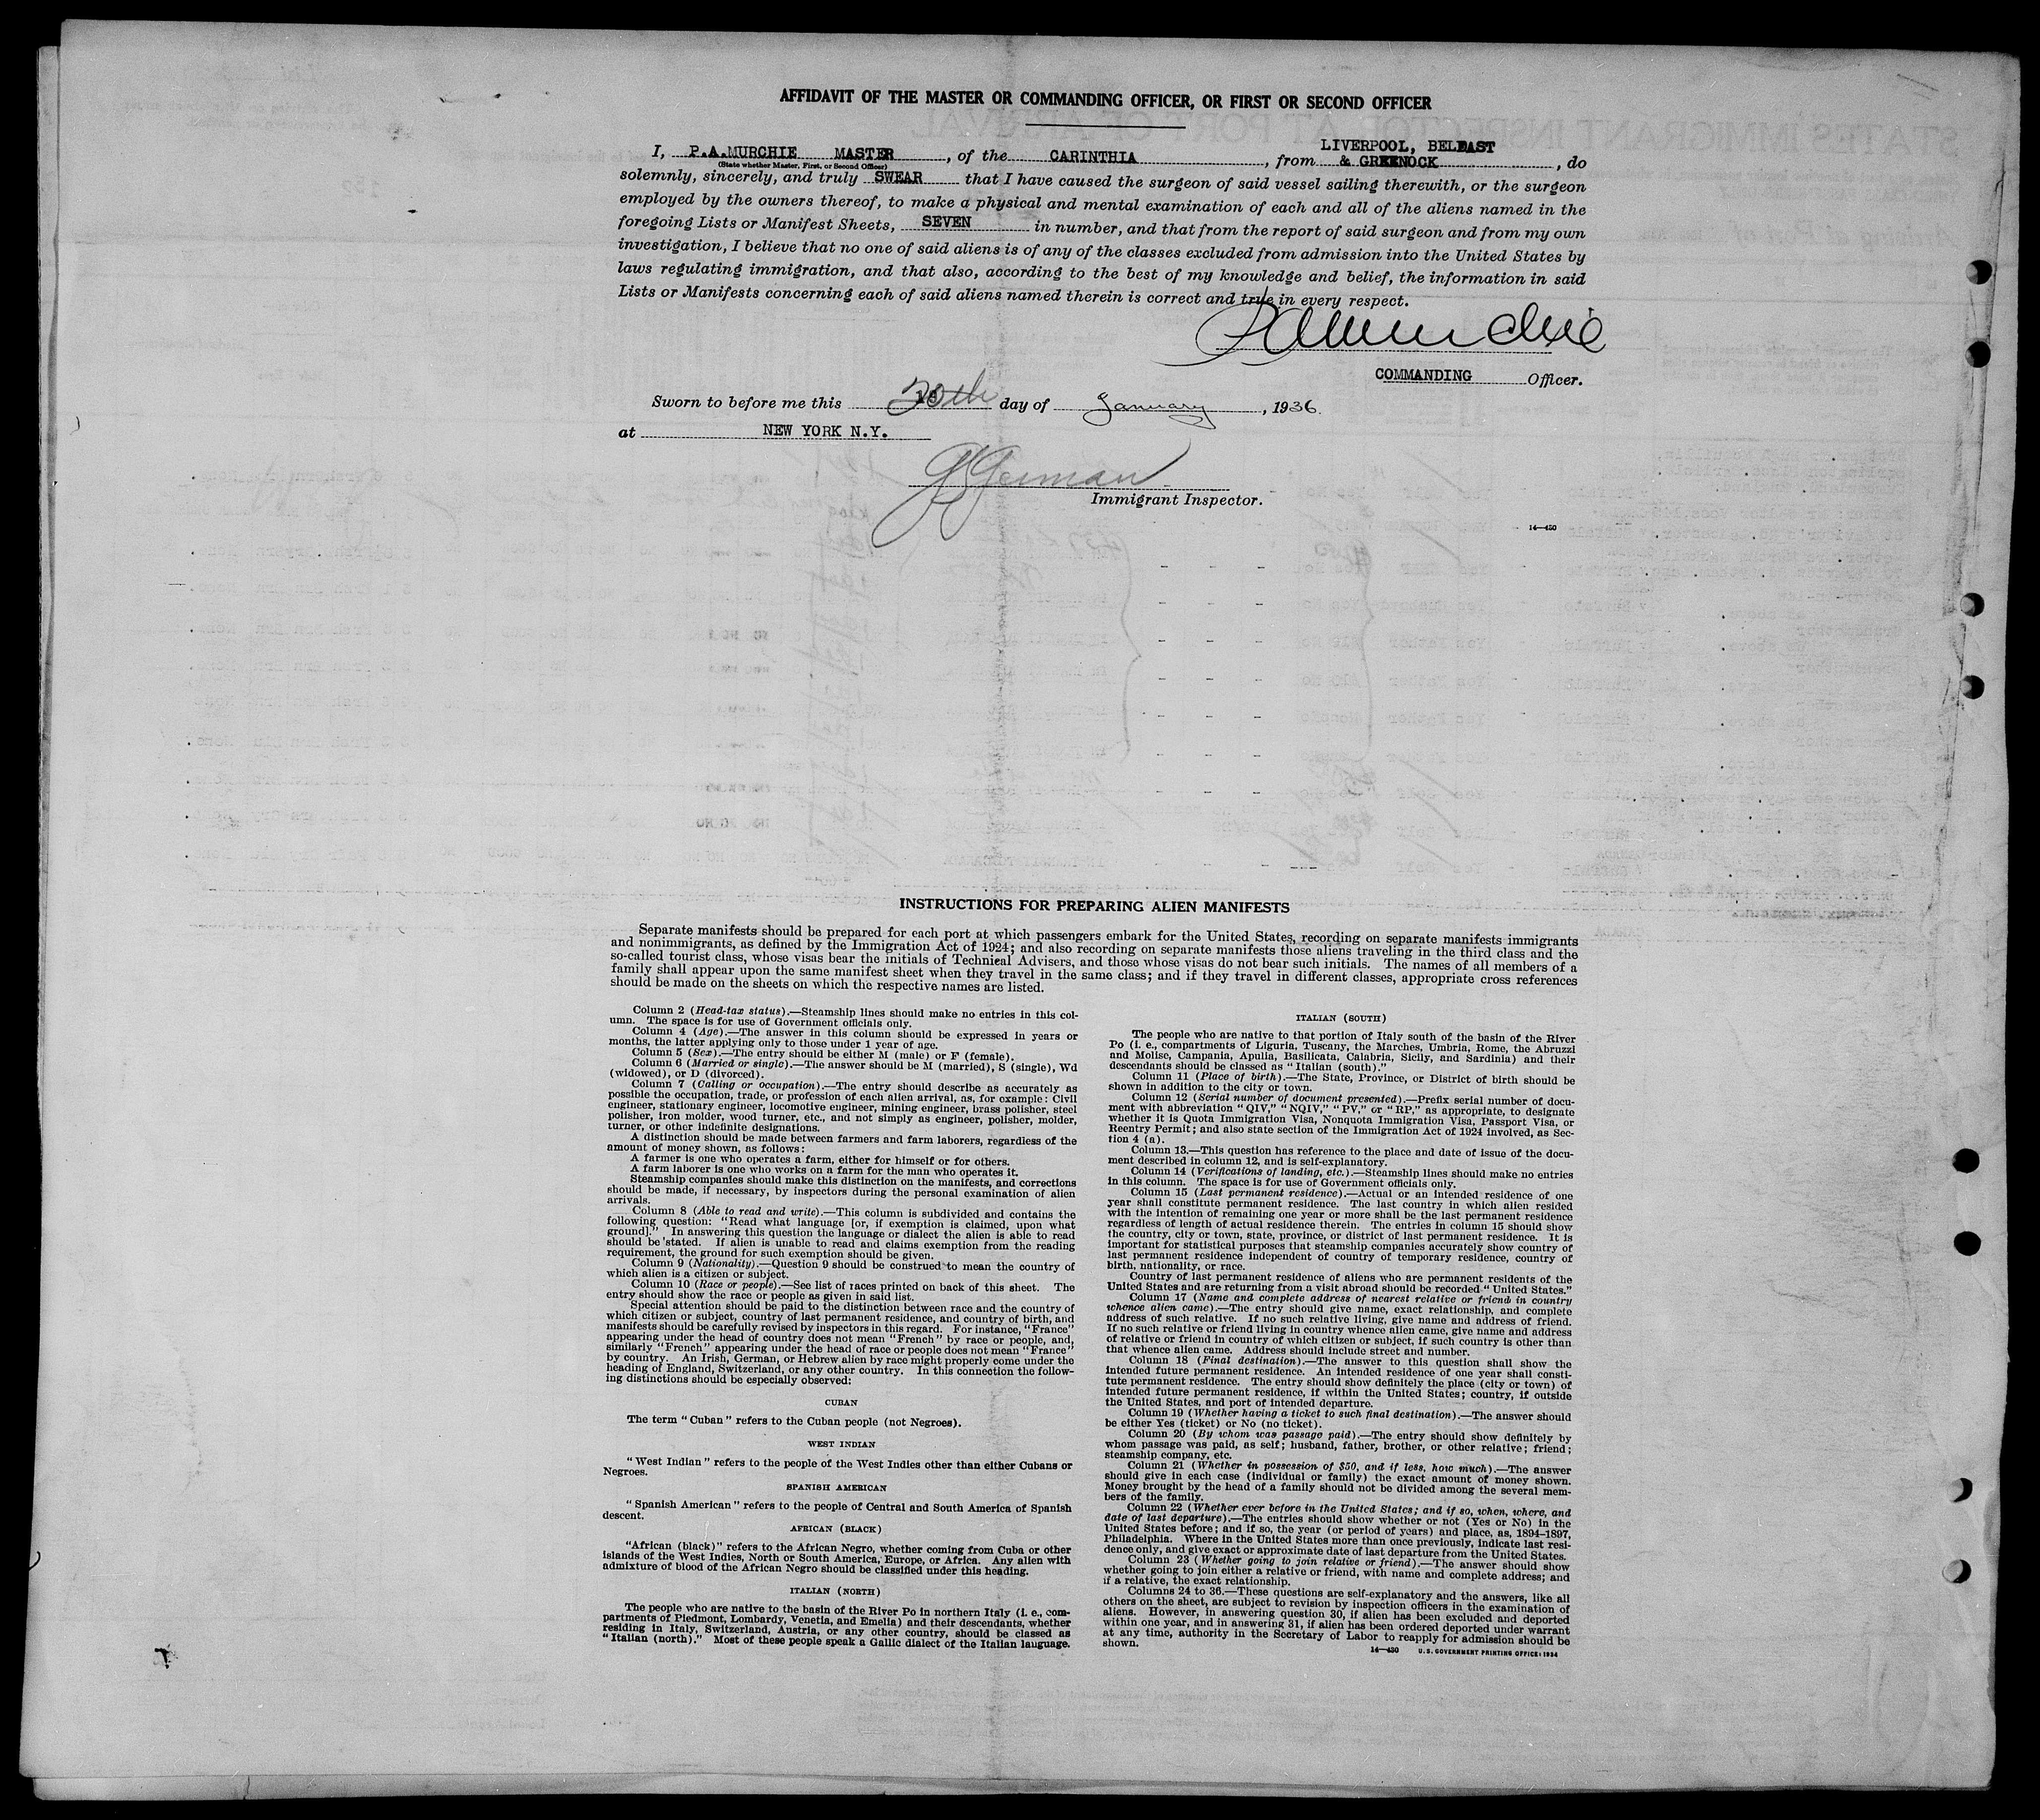 AFFIDAVIT OF THE MASTER OR COMMANDING OFFICER, OR FIRST OR SECOND OFFICER
I, P.A.MURCHIE MASTER, of the CARINTHIA, from LIVERPOOL, BELFAST & GREENOCK, do
(State whether Master, First, or Second Officer)
solemnly, sincerely, and truly SWEAR that I have caused the surgeon of said vessel sailing therewith, or the surgeon
employed by the owners thereof, to make a physical and mental examination of each and all of the aliens named in the
foregoing Lists or Manifest Sheets, SEVEN in number, and that from the report of said surgeon and from my own
investigation, I believe that no one of said aliens is of any of the classes excluded from admission into the United States by
laws regulating immigration, and that also, according to the best of my knowledge and belief, the information in said
Lists or Manifests concerning each of said aliens named therein is correct and true in every respect.
PAMurchie
COMMANDING Officer.
Sworn to before me this 20th day of January, 1936.
at NEW YORK N.Y.
German
Immigrant Inspector.
14—450
INSTRUCTIONS FOR PREPARING ALIEN MANIFESTS
Separate manifests should be prepared for each port at which passengers embark for the United States, recording on separate manifests immigrants
and nonimmigrants, as defined by the Immigration Act of 1924; and also recording on separate manifests those aliens traveling in the third class and the
so-called tourist class, whose visas bear the initials of Technical Advisers, and those whose visas do not bear such initials. The names of all members of a
family shall appear upon the same manifest sheet when they travel in the same class; and if they travel in different classes, appropriate cross references
should be made on the sheets on which the respective names are listed.
Column 2 (Head-tax status).—Steamship lines should make no entries in this col-
umn. The space is for use of Government officials only.
Column 4 (Age).—The answer in this column should be expressed in years or
months, the latter applying only to those under 1 year of age.
Column 5 (Sex).—The entry should be either M (male) or F (female).
Column 6 (Married or single).—The answer should be M (married), S (single), Wd
(widowed), or D (divorced).
Column 7 (Calling or occupation).—The entry should describe as accurately as
possible the occupation, trade, or profession of each alien arrival, as, for example: Civil
engineer, stationary engineer, locomotive engineer, mining engineer, brass polisher, steel
polisher, iron molder, wood turner, etc., and not simply as engineer, polisher, molder,
turner, or other indefinite designations.
A distinction should be made between farmers and farm laborers, regardless of the
amount of money shown, as follows:
A farmer is one who operates a farm, either for himself or for others.
A farm laborer is one who works on a farm for the man who operates it.
Steamship companies should make this distinction on the manifests, and corrections
should be made, if necessary, by inspectors during the personal examination of alien
arrivals.
Column 8 (Able to read and write).—This column is subdivided and contains the
following question: "Read what language [or, if exemption is claimed, upon what
ground]." In answering this question the language or dialect the alien is able to read
should be stated. If alien is unable to read and claims exemption from the reading
requirement, the ground for such exemption should be given.
Column 9 (Nationality).—Question 9 should be construed to mean the country of
which alien is a citizen or subject.
Column 10 (Race or people).—See list of races printed on back of this sheet. The
entry should show the race or people as given in said list.
Special attention should be paid to the distinction between race and the country of
which citizen or subject, country of last permanent residence, and country of birth, and
manifests should be carefully revised by inspectors in this regard. For instance, "France"
appearing under the head of country does not mean "French" by race or people, and,
similarly "French" appearing under the head of race or people does not mean "France"
by country. An Irish, German, or Hebrew alien by race might properly come under the
heading of England, Switzerland, or any other country. In this connection the follow-
ing distinctions should be especially observed:
CUBAN
The term "Cuban" refers to the Cuban people (not Negroes).
WEST INDIAN
"West Indian" refers to the people of the West Indies other than either Cubans or
Negroes.
SPANISH AMERICAN
"Spanish American" refers to the people of Central and South America of Spanish
descent.
AFRICAN (BLACK)
"African (black)" refers to the African Negro, whether coming from Cuba or other
islands of the West Indies, North or South America, Europe, or Africa. Any alien with
admixture of blood of the African Negro should be classified under this heading.
ITALIAN (NORTH)
The people who are native to the basin of the River Po in northern Italy (i. e., com-
partments of Piedmont, Lombardy, Venetia, and Emelia) and their descendants, whether
residing in Italy, Switzerland, Austria, or any other country, should be classed as
"Italian (north)." Most of these people speak a Gallic dialect of the Italian language.
ITALIAN (SOUTH)
The people who are native to that portion of Italy south of the basin of the River
Po (i. e., compartments of Liguria, Tuscany, the Marches, Umbria, Rome, the Abruzzi
and Molise, Campania, Apulia, Basilicata, Calabria, Sicily, and Sardinia) and their
descendants should be classed as "Italian (south)."
Column 11 (Place of birth).—The State, Province, or District of birth should be
shown in addition to the city or town.
Column 12 (Serial number of document presented).—Prefix serial number of docu-
ment with abbreviation "QIV," "NQIV," "PV," or "RP," as appropriate, to designate
whether it is Quota Immigration Visa, Nonquota Immigration Visa, Passport Visa, or
Reentry Permit; and also state section of the Immigration Act of 1924 involved, as Sec-
tion 4 (a).
Column 13.—This question has reference to the place and date of issue of the docu-
ment described in column 12, and is self-explanatory.
Column 14 (Verifications of landing, etc.).—Steamship lines should make no entries
in this column. The space is for use of Government officials only.
Column 15 (Last permanent residence).—Actual or an intended residence of one
year shall constitute permanent residence. The last country in which alien resided
with the intention of remaining one year or more shall be the last permanent residence
regardless of length of actual residence therein. The entries in column 15 should show
the country, city or town, state, province, or district of last permanent residence. It is
important for statistical purposes that steamship companies accurately show country of
last permanent residence independent of country of temporary residence, country of
birth, nationality, or race.
Country of last permanent residence of aliens who are permanent residents of the
United States and are returning from a visit abroad should be recorded "United States."
Column 17 (Name and complete address of nearest relative or friend in country
whence alien came).—The entry should give name, exact relationship, and complete
address of such relative. If no such relative living, give name and address of friend.
If no such relative or friend living in country whence alien came, give name and address
of relative or friend in country of which citizen or subject, if such country is other than
that whence alien came. Address should include street and number.
Column 18 (Final destination).—The answer to this question shall show the
intended future permanent residence. An intended residence of one year shall consti-
tute permanent residence. The entry should show definitely the place (city or town) of
intended future permanent residence, if within the United States; country, if outside
the United States, and port of intended departure.
Column 19 (Whether having a ticket to such final destination).—The answer should
be either Yes (ticket) or No (no ticket).
Column 20 (By whom was passage paid).—The entry should show definitely by
whom passage was paid, as self; husband, father, brother, or other relative; friend;
steamship company, etc.
Column 21 (Whether in possession of $50, and if less, how much).—The answer
should give in each case (individual or family) the exact amount of money shown.
Money brought by the head of a family should not be divided among the several mem-
bers of the family.
Column 22 (Whether ever before in the United States; and if so, when, where, and
date of last departure).—The entries should show whether or not (Yes or No) in the
United States before; and if so, the year (or period of years) and place, as, 1894–1897,
Philadelphia. Where in the United States more than once previously, indicate last resi-
dence only, and give exact or approximate date of last departure from the United States.
Column 23 (Whether going to join relative or friend).—The answer should show
whether going to join either a relative or friend, with name and complete address; and
if a relative, the exact relationship.
Columns 24 to 36.—These questions are self-explanatory and the answers, like all
others on the sheet, are subject to revision by inspection officers in the examination of
aliens. However, in answering question 30, if alien has been excluded and deported
within one year, and in answering 31, if alien has been ordered deported under warrant
at any time, authority in the Secretary of Labor to reapply for admission should be
shown.
14—450 U.S. GOVERNMENT PRINTING OFFICE: 1934